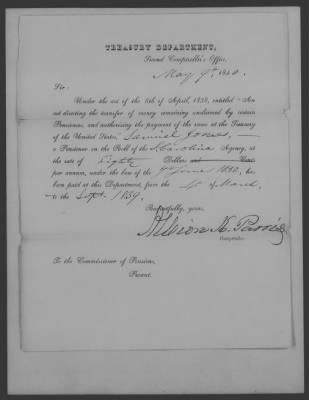 TREASURY DEPARTMENT,
Second Comptroller's Office,
May 9th 1840.
Sir:
Under the act of the 6th of April, 1838, entitled "An
act directing the transfer of money remaining unclaimed by certain
Pensioners, and authorizing the payment of the same at the Treasury
of the United States," Samuel Jones,
a Pensioner on the Roll of the S. Carolina Agency, at
the rate of Eighty Dollars and Cents
per annum, under the law of the 7th June 1832, has
been paid at this Department, from the 4th of March,
to the Sept. 1839.
Respectfully, yours,
Albion K. Parris
Comptroller.
To the Commissioner of Pensions,
Present.